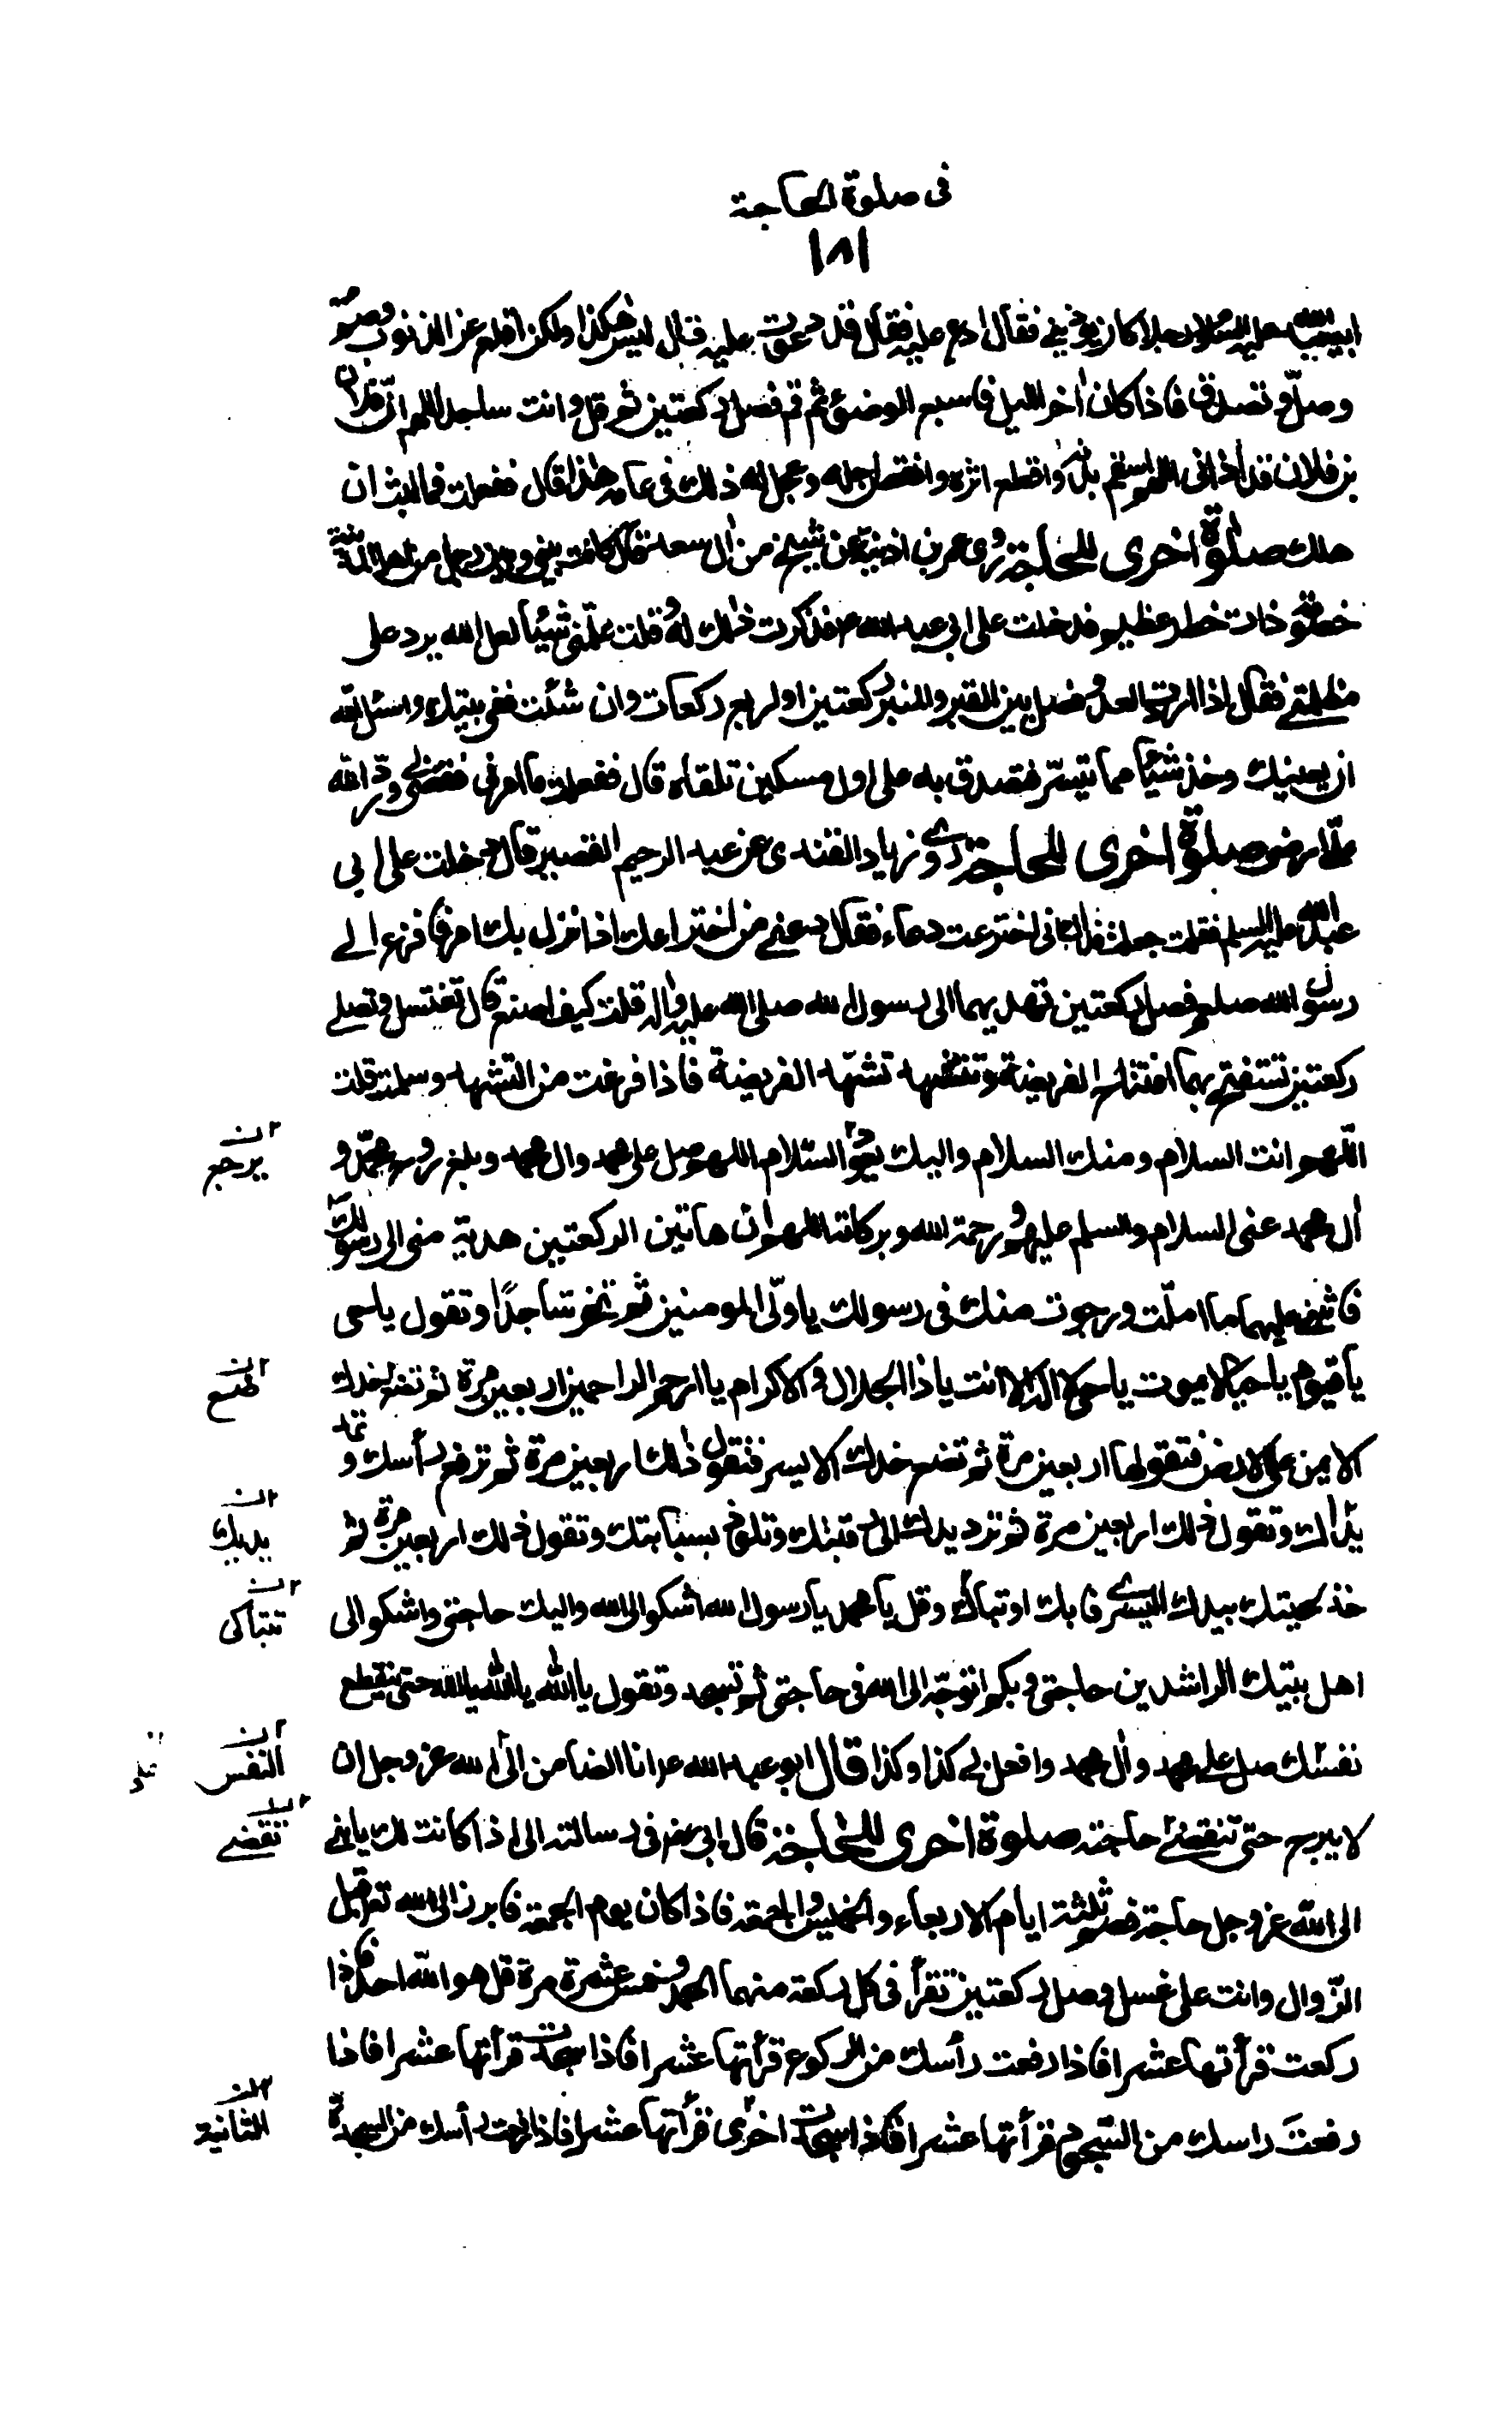 فى صلوة الحاجة
١٨١
ابيعبدالله عليه السلام رجلا كان يؤذينى فقال ادع عليه فقال قد دعوت عليه فقال ليس هكذا ولكن اقلع عن الذنوب وصم
وصلّ وتصدق فاذا كان آخر الليل فاسبغ الوضوء ثم قم فصل ركعتين ثم قل وانت ساجد اللهم انّ فلان
بن فلان قد اذانى اللهم اسقم بدنه واقطع اثره وانقص اجله وعجل له ذلك فى عامه هذا قال ففعلت فما لبث ان
هلك صلوة اخرى للحاجة روى عمر بن اذينة عن شيخ من آل سعد قال كانت بينى وبين رجل من اهل المدينة
خصومة ذات خطر عظيم فدخلت على ابى عبد الله ع فذكرت ذلك له وقلت علّمنى شيئا لعل الله يرد على
مظلمتى فقال اذا اردت العدو فصل بين القبر والمنبر ركعتين او اربع ركعات وان شئت ففى بيتك واسئل الله
ان يعينك وخذ شيئا مما تيسّر فتصدق به على اول مسكين تلقاه قال ففعلت ما امرنى فقضى لى وردّ الله
علىّ ارضى صلوة اخرى للحاجة روى زياد القندى عن عبد الرحيم القصير قال دخلت على ابى
عبد الله عليه السلم فقلت جعلت فداك انى اخترعت دعاء فقال دعنى من اختراعك اذا نزل بك امر فافزع الى
رسول الله صلعم وصل ركعتين تهديهما الى رسول الله صلى الله عليه واله قلت كيف اصنع قال تغتسل وتصلى
ركعتين تستفتح بهما افتتاح الفريضة وتتشهد تشهّد الفريضة فاذا فرغت من التشهد وسلمت قلت
اللّهم انت السلام ومنك السلام واليك يعود السّلام اللهم صل على محمد وال محمد وبلغ روح محمّد و
يرجع
آل محمد عنى السلام والسلم عليهم ورحمة الله وبركاته اللهم ان هاتين الركعتين هدية منى الى رسولك
فاثبنى عليهما ما امّلت ورجوت منك فى رسولك يا ولّى المومنين ثم تخر ساجدًا وتقول يا حى
يا قيوم يا حيا لا يموت يا حى لا اله الا انت يا ذا الجلال والاكرام يا ارحم الراحمين اربعين مرة ثم تضع خدك
ضع
الايمن على الارض فتقولها اربعين مرة ثم تضع خدك الايسر فتقول ذلك اربعين مرة ثم ترفع رأسك و تمد
يدك وتقول ذلك اربعين مرة ثم ترد يدك الى رقبتك وتلوذ بسبابتك وتقول ذلك اربعين مرة ثم
يديك
خذ لحيتك بيدك اليسرى فابك او تباك وقل يا محمد يا رسول الله اشكو الى الله واليك حاجتى واشكو الى
تتباكى
اهل بيتك الراشدين حاجتى وبكم اتوجّه الى الله فى حاجتى ثم تسجد وتقول يا الله يا الله يا الله حتى ينقطع
نفسك صل على محمد وآل محمد وافعل بى كذا وكذا قال ابو عبد الله ع انا الضامن الى الله عز وجل ان
النفس
لا يبرح حتى تنقضى حاجته صلوة اخرى للحاجة قال ابى رض فى رسالته الى اذا كانت لك يا بنى
تقضى
الى الله عز وجل حاجة فصم ثلثة ايام الاربعاء والخميس والجمعة فاذا كان يوم الجمعة فابرز الى الله تعه قبل
الزّوال وانت على غسل وصل ركعتين تقرأ فى كل ركعة منهما الحمد وخمس عشرة مرة قل هو الله احد فاذا
ركعت قرأتها عشرا فاذا رفعت رأسك من الركوع قرأتها عشرا فاذا سجدت قرأتها عشرا فاذا
رفعتَ راسك من السّجود قرأتها عشرا فاذا سجدت اخرى قرأتها عشرا فاذا رفعت رأسك من السجدة
الثانية